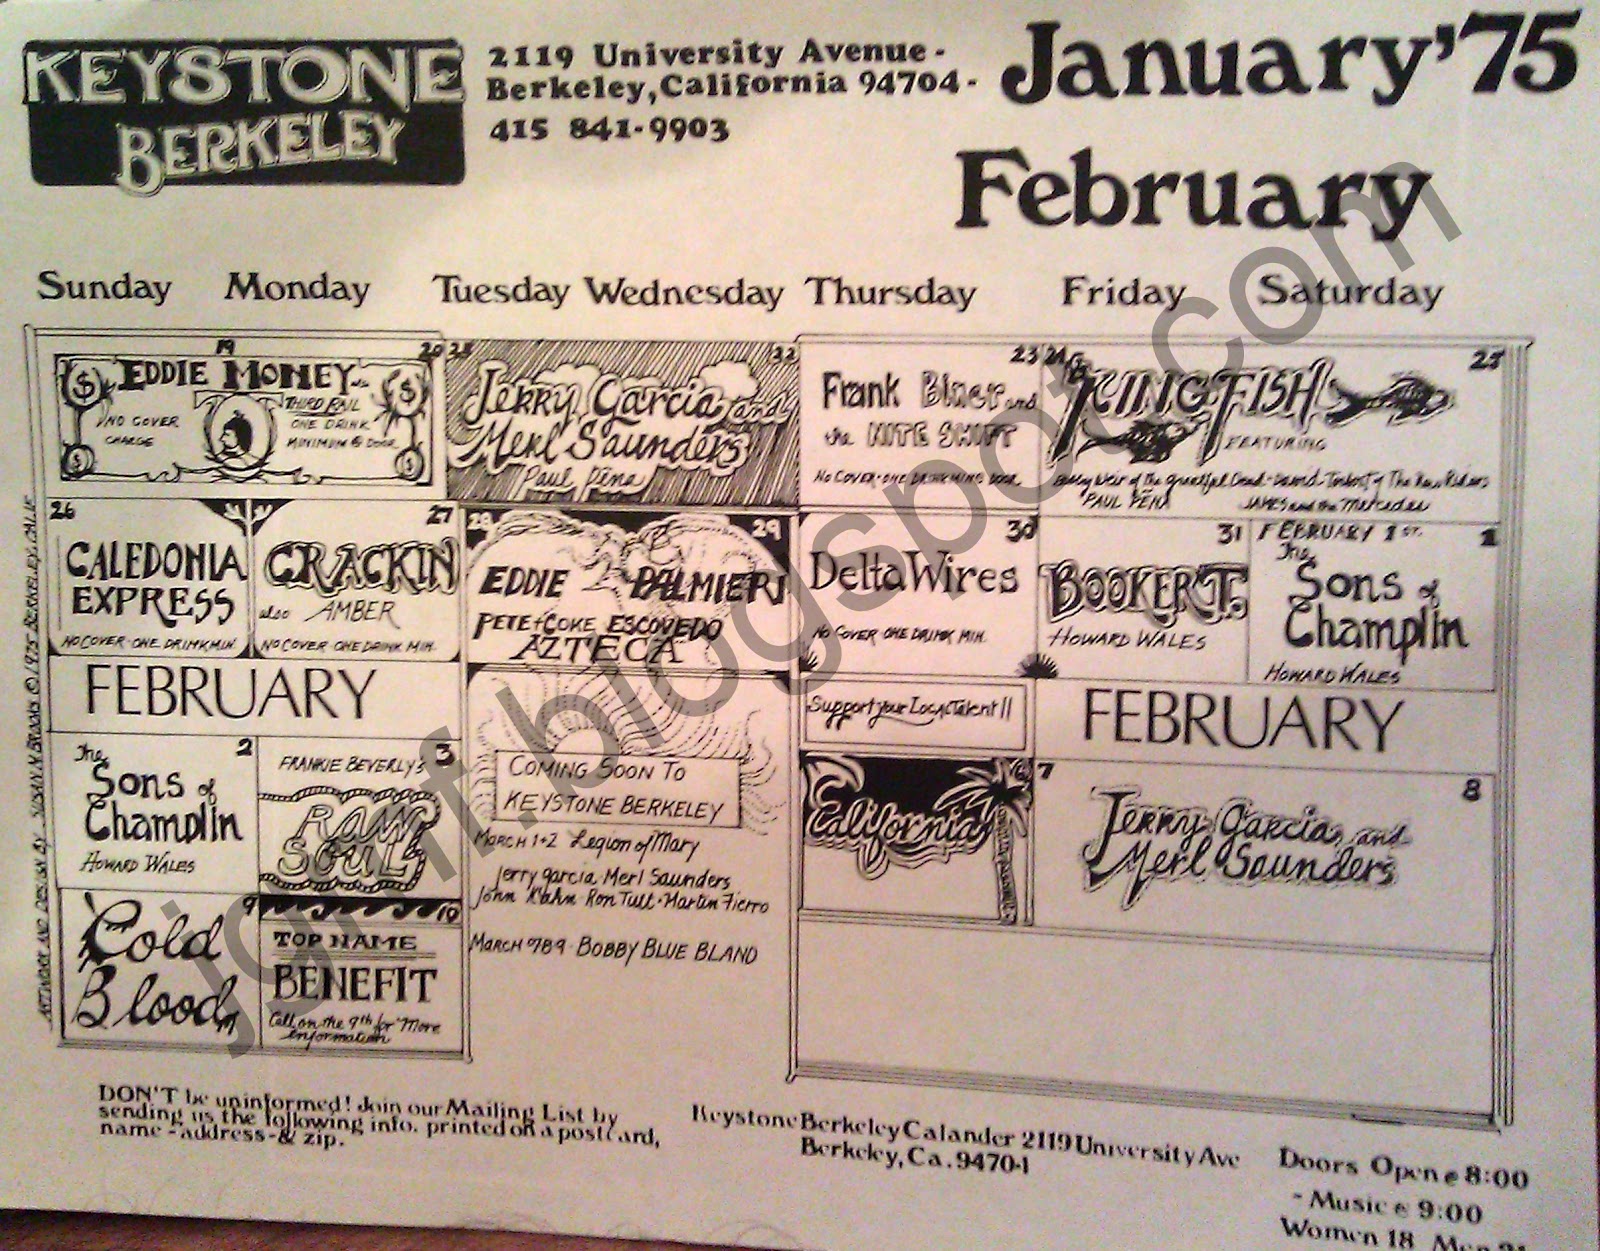 KEYSTONE
BERKELEY
2119 University Avenue -
Berkeley, California 94704 -
415 841-9903
January '75
February
Sunday Monday Tuesday Wednesday Thursday Friday Saturday
19 20
EDDIE MONEY
NO COVER
CHARGE
THIRD RAIL
ONE DRINK
MINIMUM @ DOOR
22
Jerry Garcia and
Merl Saunders
Paul Pena
23
Frank Biner and
the NITE SHIFT
NO COVER • ONE DRINK MIN @ DOOR
24 25
KINGFISH
FEATURING
Bobby Weir of the Grateful Dead - David Torbert of The New Riders
PAUL PENA JAMES and the Mercedes
26
CALEDONIA
EXPRESS
NO COVER • ONE DRINK MIN.
27
CRACKIN
also AMBER
NO COVER ONE DRINK MIN.
28 29
EDDIE PALMIERI
PETE + COKE ESCOVEDO
AZTECA
30
Delta Wires
NO COVER ONE DRINK MIN.
31
BOOKER T.
HOWARD WALES
FEBRUARY 1ST. 1
The
Sons of
Champlin
HOWARD WALES
FEBRUARY
2
The
Sons of
Champlin
HOWARD WALES
3
FRANKIE BEVERLY'S
RAW
SOUL
COMING SOON TO
KEYSTONE BERKELEY
MARCH 1+2 Legion of Mary
Jerry Garcia Merl Saunders
John Kahn • Ron Tutt • Martin Fierro
MARCH 789 • BOBBY BLUE BLAND
Support your Local Talent!!
FEBRUARY
California
7 8
Jerry Garcia and
Merl Saunders
9
Cold
Blood
10
TOP NAME
BENEFIT
Call on the 9th for More
information
ARTWORK AND DESIGN BY SUSAN M BROOKS © 1975 BERKELEY, CALIF
DON'T be uninformed! Join our Mailing List by
sending us the following info. printed on a postcard,
name - address - & zip.
Keystone Berkeley Calander 2119 University Ave
Berkeley, Ca. 94704
Doors Open @ 8:00
- Music @ 9:00
Women 18 Men 21
jgmf.blogspot.com